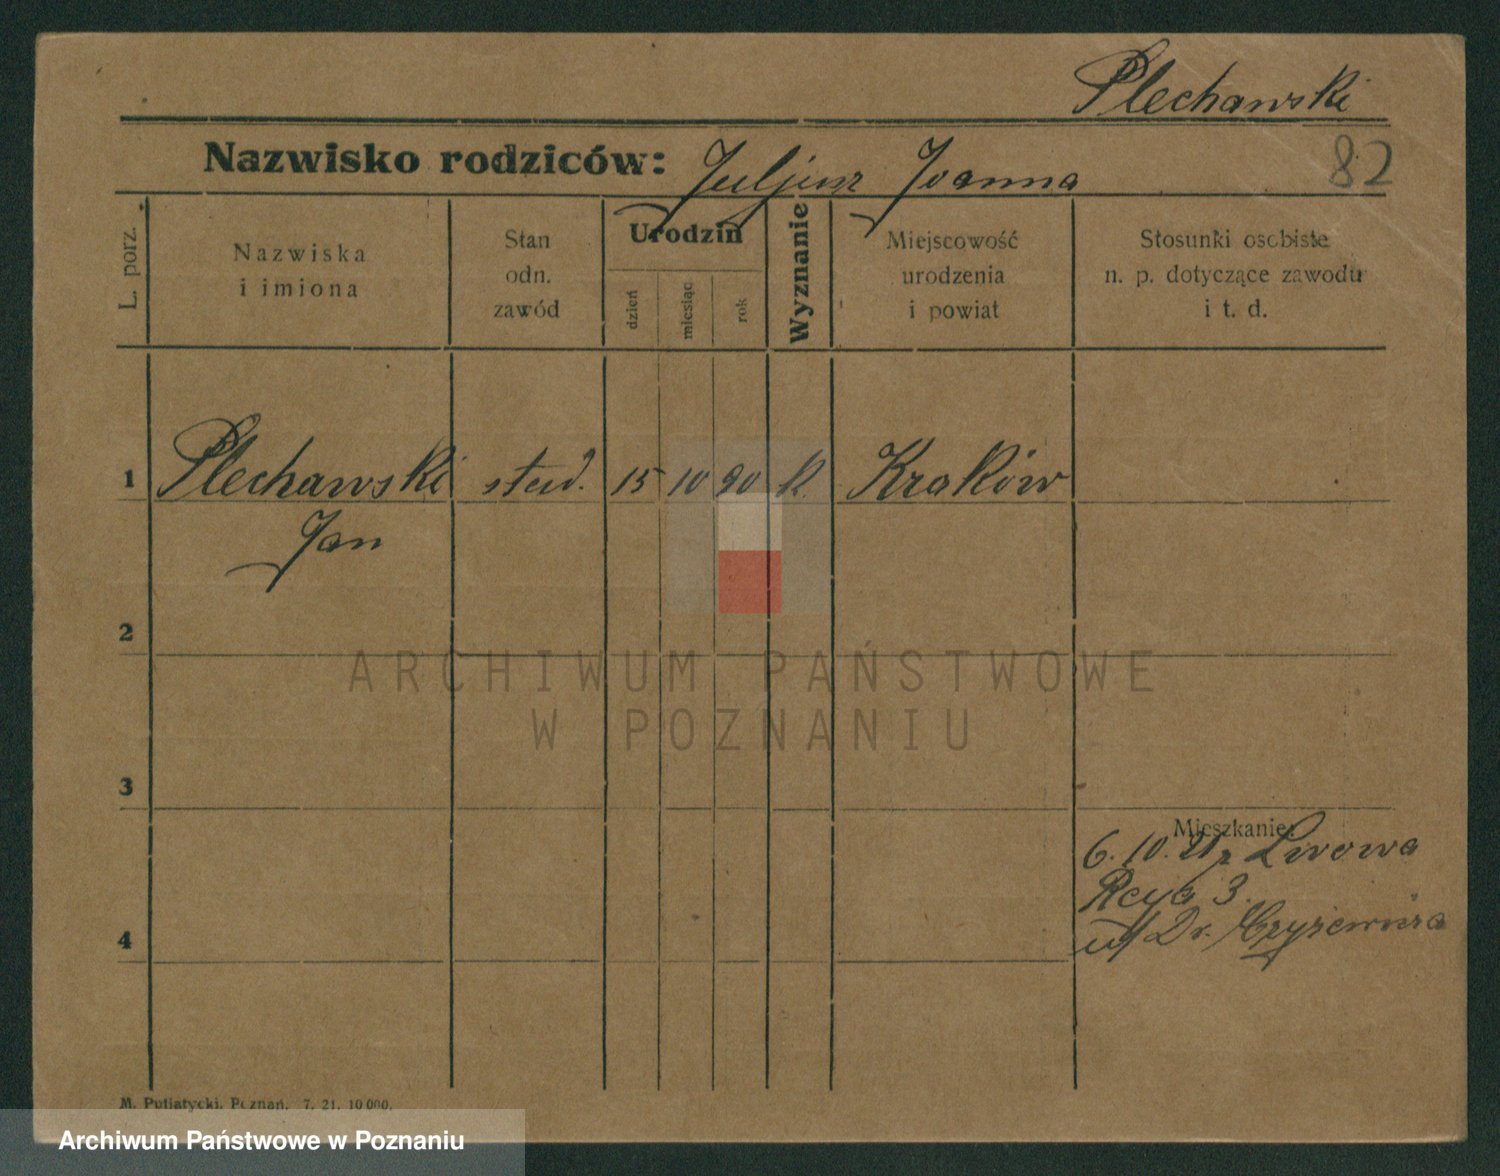 Plechawski
Nazwisko rodziców: Juljusz Joanna
82
L. porz.
Nazwiska
i imiona
Stan
odn.
zawód
Urodzin
dzień
miesiąc
rok
Wyznanie
Miejscowość
urodzenia
i powiat
Stosunki osobiste
n. p. dotyczące zawodu
i t. d.
1 Plechawski stud. 15 10 90 k. Kraków
Jan
2
3
4
Mieszkanie:
6. 10. 21 z Lwowa
Reya 3.
u/ Dr. Czyżewicza
M. Putiatycki, Poznań. 7. 21. 10 000.
ARCHIWUM PAŃSTWOWE
W POZNANIU
Archiwum Państwowe w Poznaniu